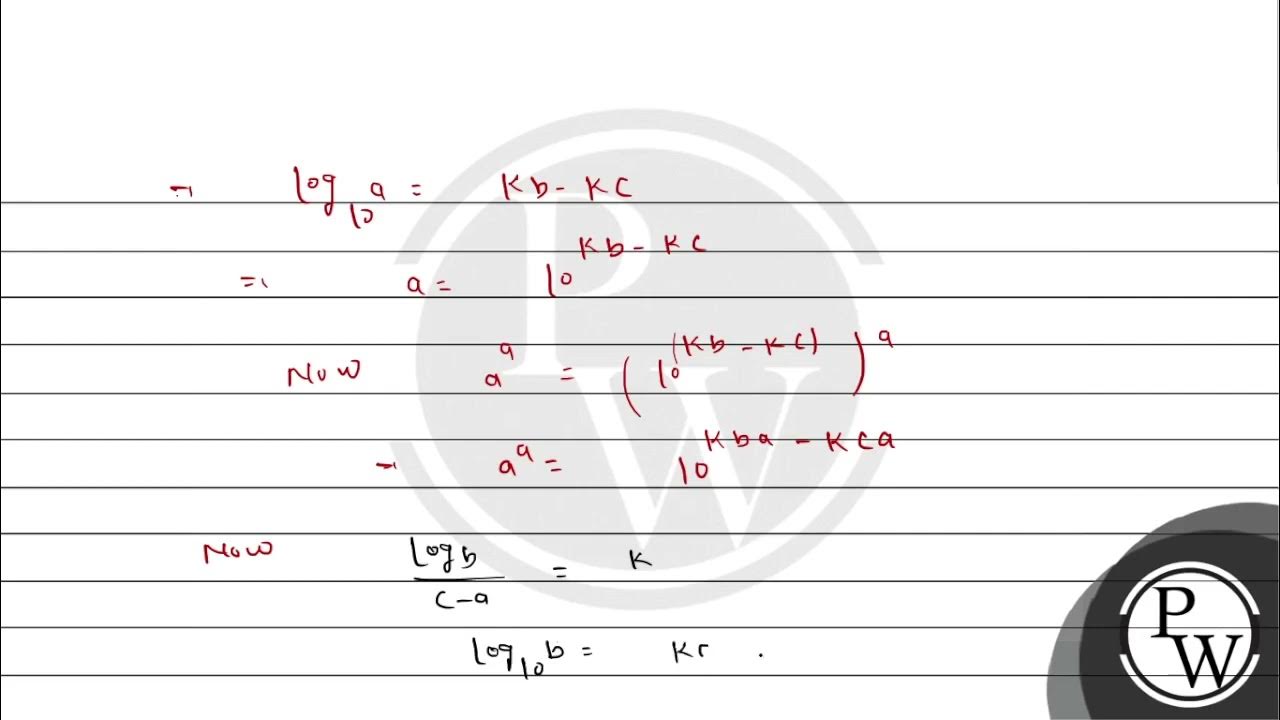 → log₁₀ a = Kb - KC
⇒ a = 10^(Kb - KC)
Now a^a = (10^(Kb - KC))^a
→ a^a = 10^(Kba - KCa)
Now log b / c-a = K
log₁₀ b = Kc .
PW
PW